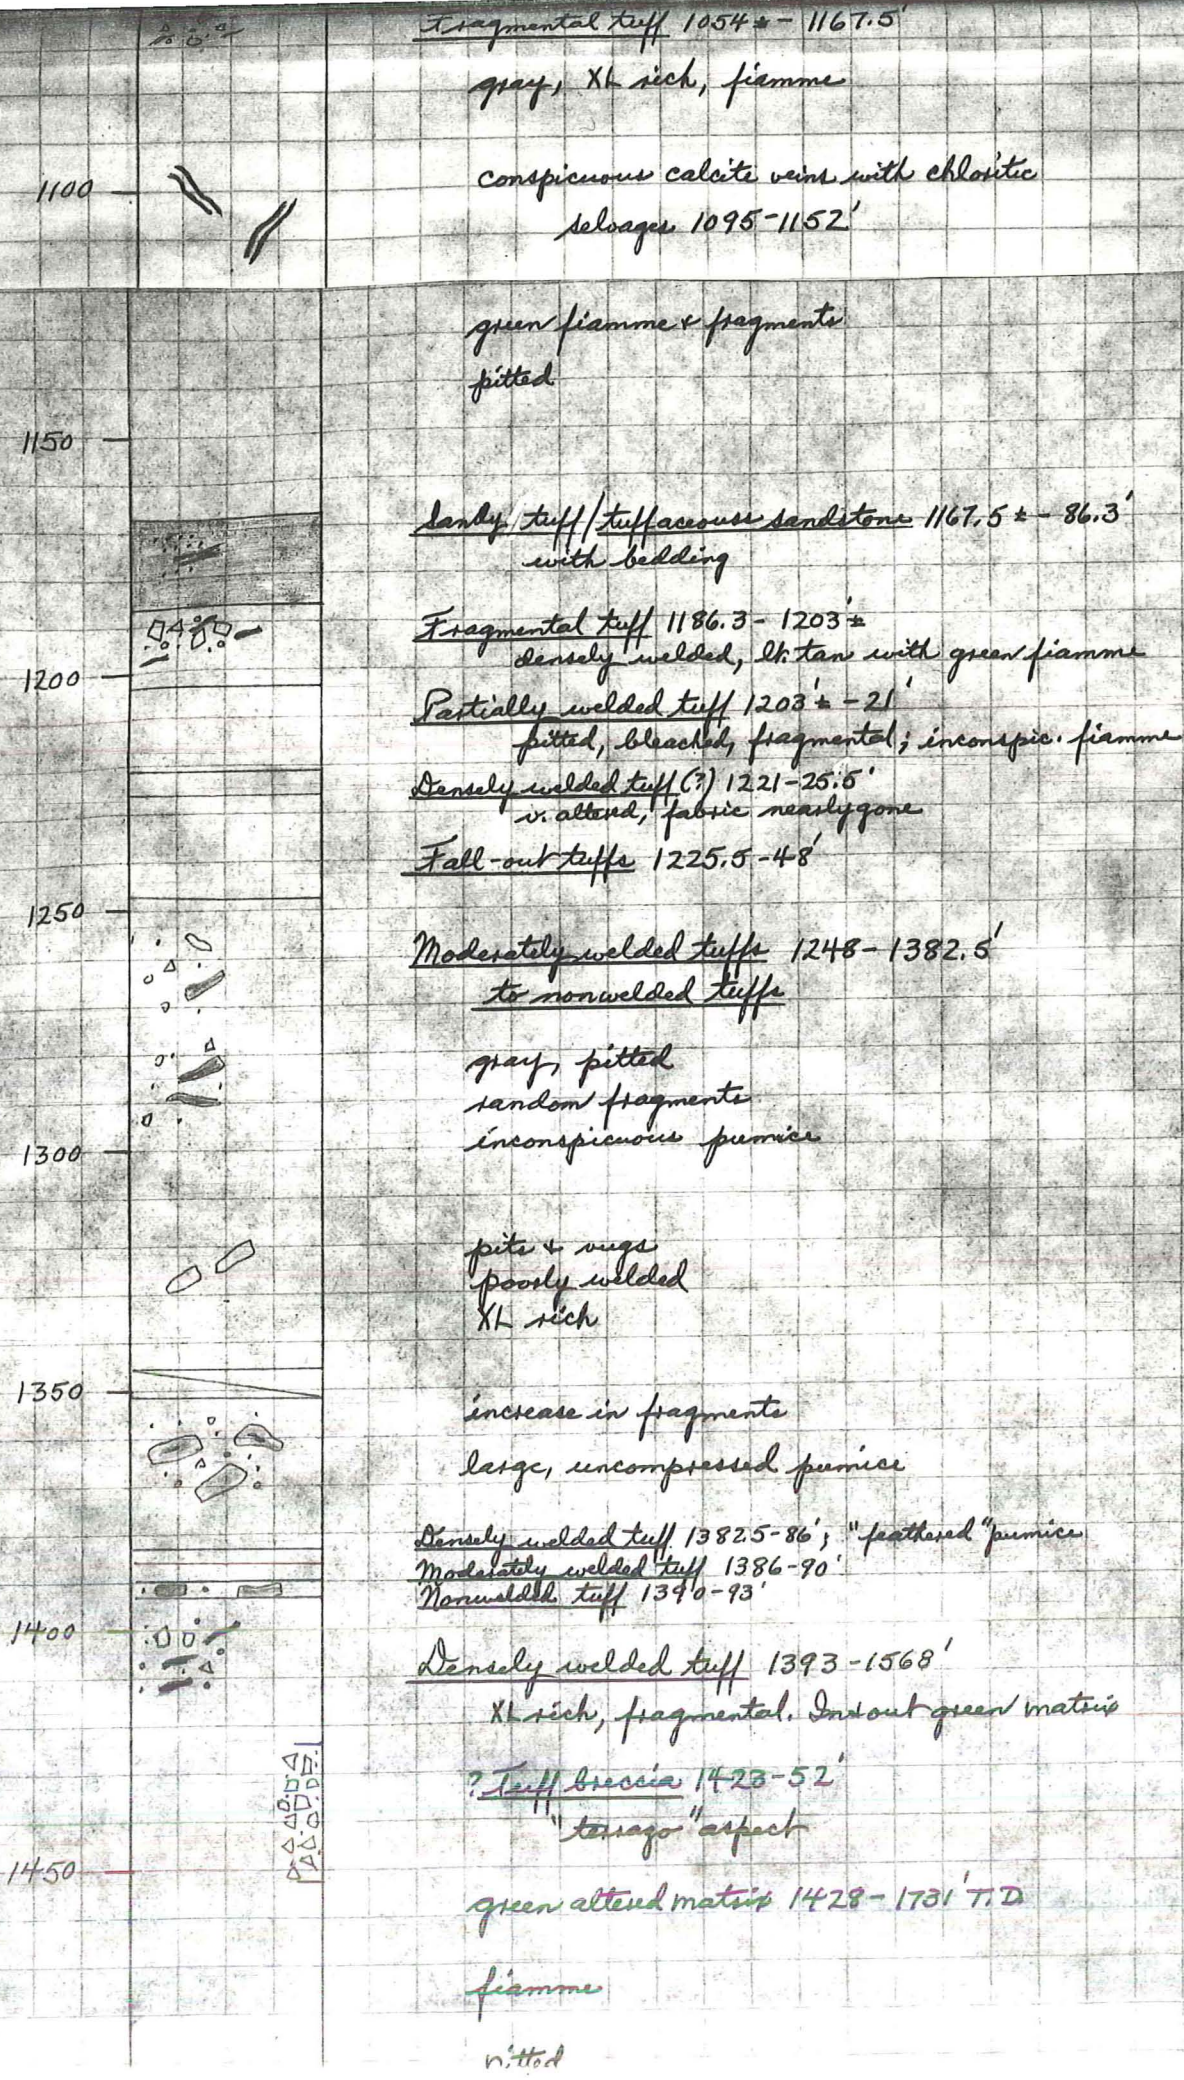 Fragmental tuff 1054± - 1167.5'
gray, XL rich, fiamme
1100
conspicuous calcite veins with chloritic
selvages 1095-1152'
green fiamme & fragments
pitted
1150
Sandy tuff/tuffaceous sandstone 1167.5± - 86.3'
with bedding
Fragmental tuff 1186.3 - 1203'±
densely welded, lt. tan with green fiamme
1200
Partially welded tuff 1203'± - 21'
pitted, bleached, fragmental; inconspic. fiamme
Densely welded tuff (?) 1221-25.5'
v. altered, fabric nearly gone
Fall-out tuffs 1225.5-48'
1250
Moderately welded tuffs 1248 - 1382.5'
to nonwelded tuffs
gray, pitted
random fragments
inconspicuous pumice
1300
pits & vugs
poorly welded
XL rich
1350
increase in fragments
large, uncompressed pumice
Densely welded tuff 1382.5-86'; "feathered" pumice
Moderately welded tuff 1386-90'
Nonwelded tuff 1390-93'
1400
Densely welded tuff 1393-1568'
XL rich, fragmental. In & out green matrix
? Tuff breccia 1423-52'
"terrazo" aspect
1450
green altered matrix 1428-1731' T.D.
fiamme
pitted